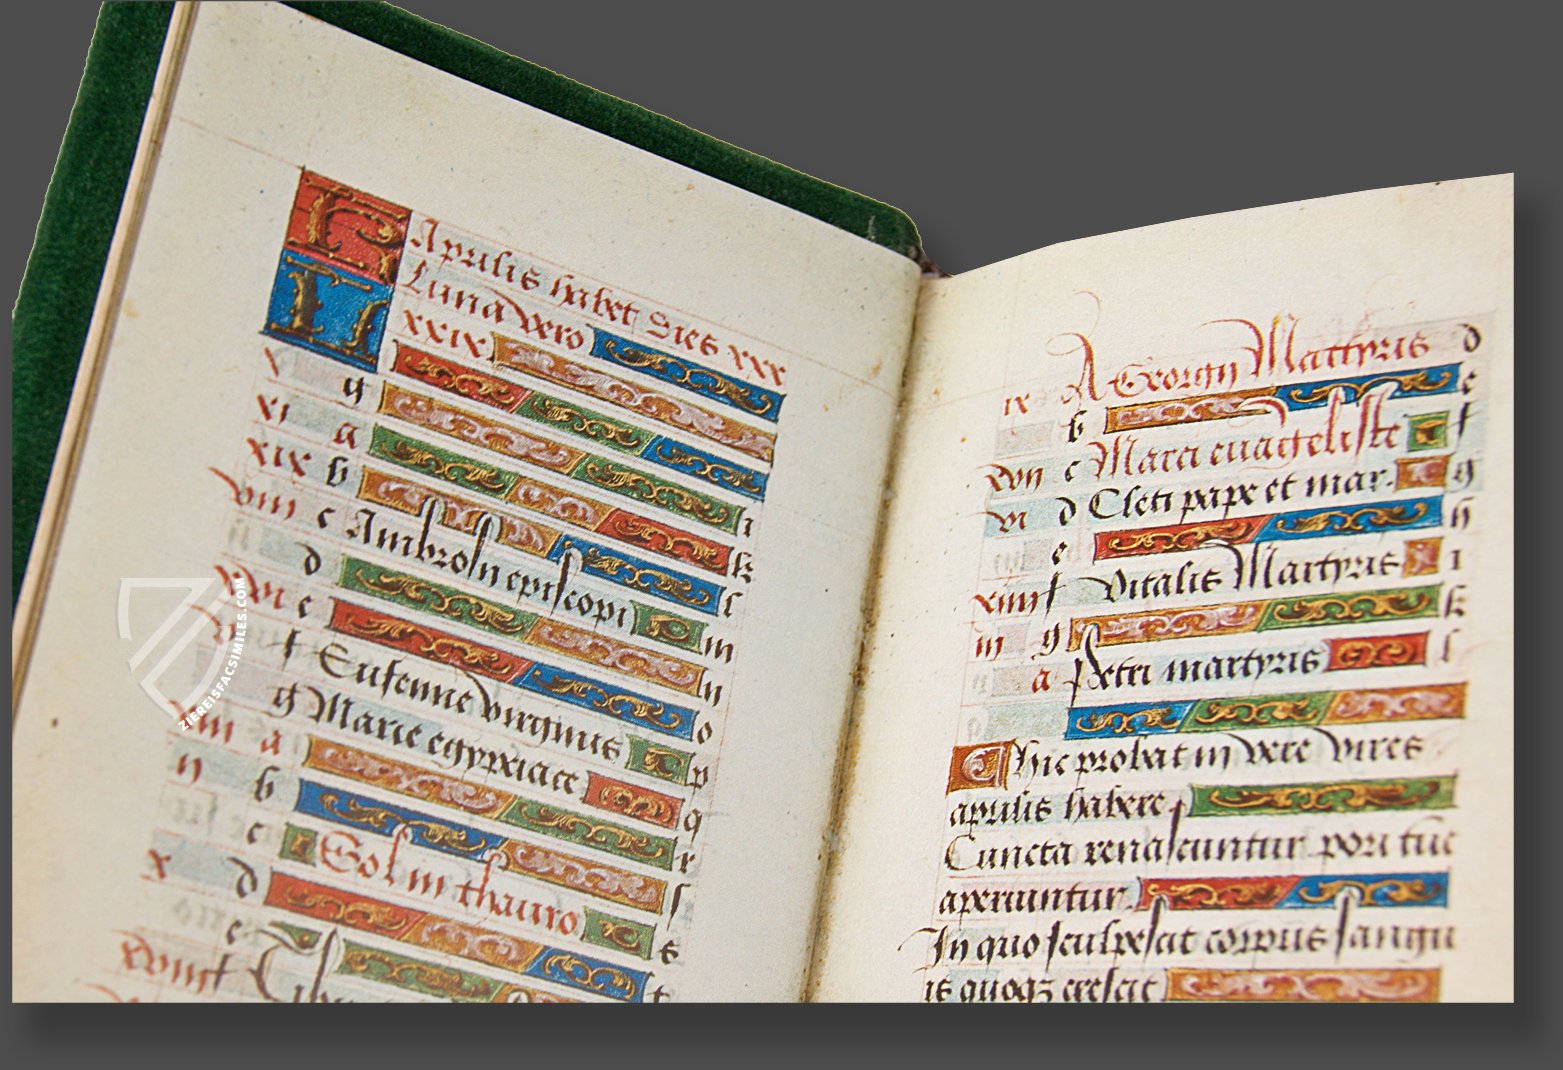 KL Aprilis habet dies xxx
Luna vero
xxix
v g
xi a i
xix b k
viii c Ambrosii episcopi l
d m
xvi e n
v f Eufemie virginis o
g Marie egypciace p
xiii a q
ii b r
c Sol in thauro s
x d s
e t
xviii f Tibu
ix A Georgii Martyris d
b e
xvii c Marci evangeliste f
vi d Cleti pape et mar. g
e h
xiiii f Vitalis Martyris i
iii g k
a Petri martyris l
Hic probat in vere vires
aprilis habere
Cuncta renascuntur pori tuc
aperiuntur.
In quo sculpescit corpus sangu
is quoqz crescit
ZIEREISFACSIMILES.COM